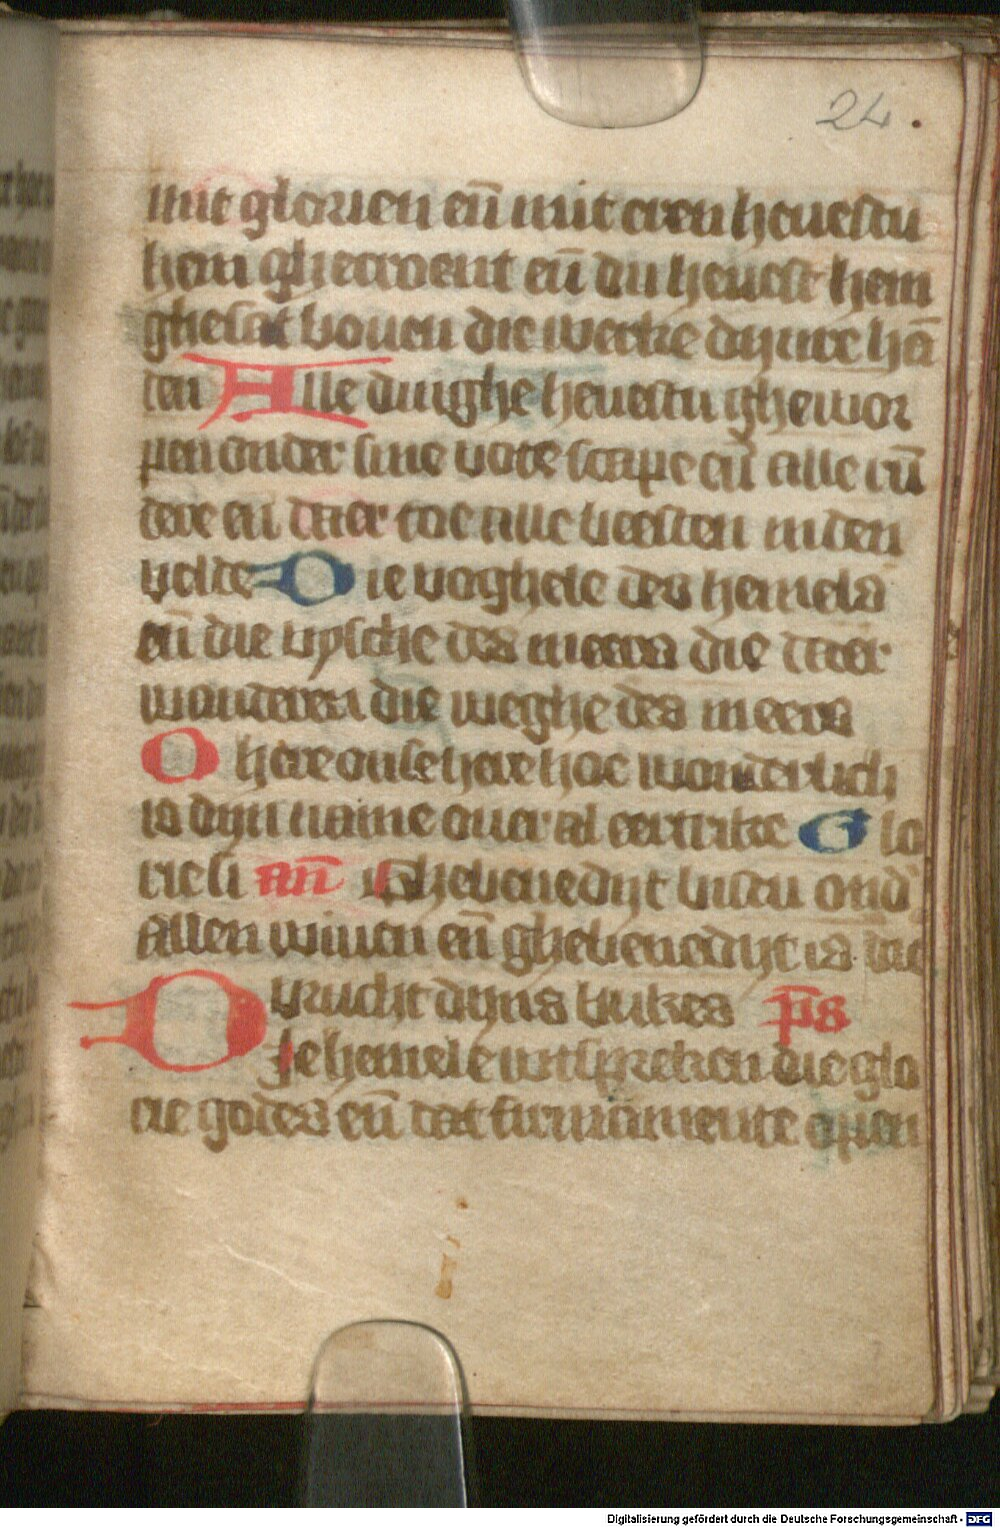 24.
mit glorien en̄ mit eren heuestu
hem ghecroent en̄ du heuest hem
ghesat bouen die werke dynre hā
den Alle dinghe heuestu ghewor
pen onder sine vote scape en̄ alle rū
dere en̄ daer toe alle beesten in den
velde Die voghele des hemels
en̄ die vyssche des meers die daer
wanderen die weghe des meers
O here onse here hoe wonderlich
is dyn name ouer al eertrike Glo
rie si an̄ Ghebenedyt bistu ond'
allen wiuen en̄ ghebenedyt is die
vrucht dyns bukes ps̄
Die hemele wtspreken die glo
rie godes en̄ dat firmamente open
Digitalisierung gefördert durch die Deutsche Forschungsgemeinschaft - DFG